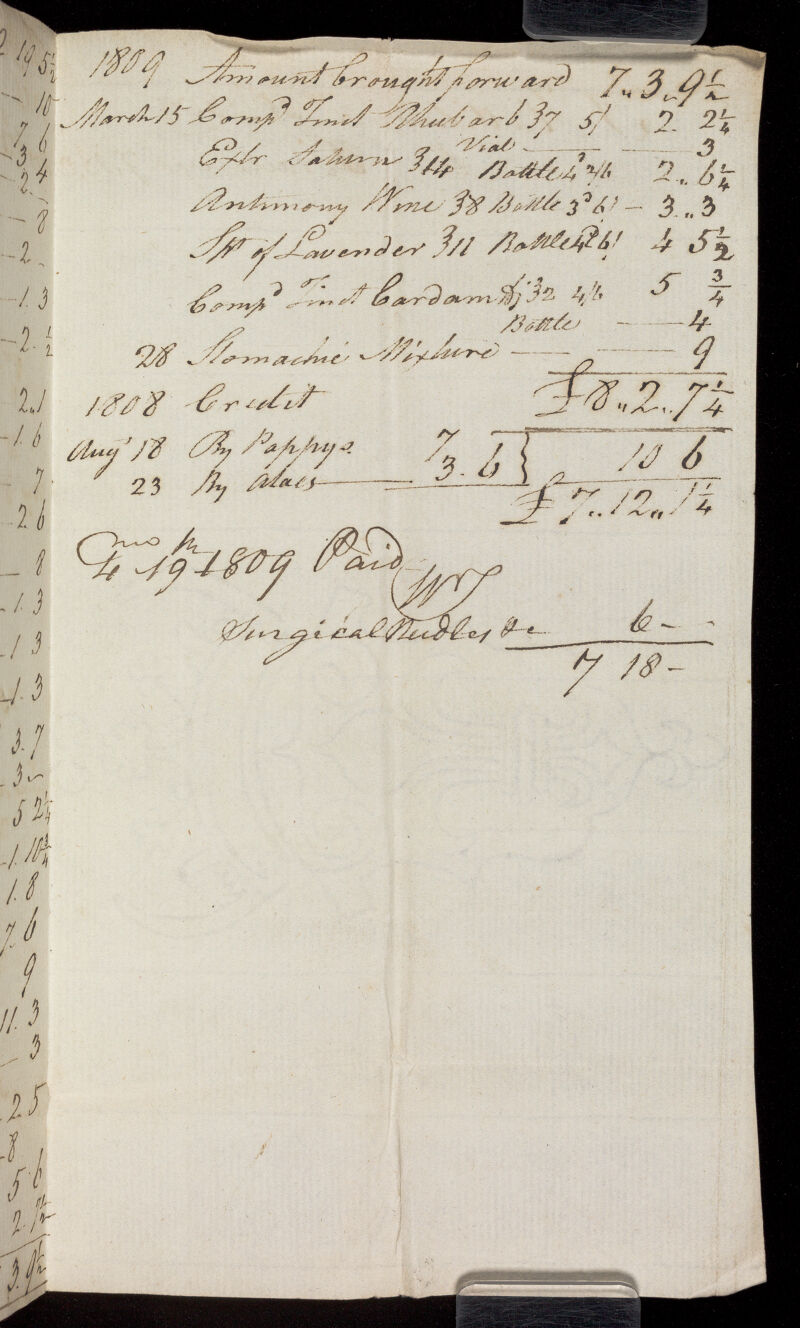 1809 Amount brought forward 7,, 3,, 9 1/2
March 15 Compd Tinct Rhubarb ℥7 5/ 2. 2 1/4
Vial — — 3
Extr Saturn ℥14 Bottle 4d 2/6 2,, 6 1/4
Antimony Wine ℥8 Bottle 3d 6/ — 3,, 3
Spt of Lavender ℥11 Bottle 4d 6/ 4 5 1/2
Compd Tinct Cardam ℔j ℥2 4/6 5 3/4
Bottle — 4
28 Stomachic Mixture — — 9
£8,, 2,, 7 1/4
1808 Credit
Augt 18 By Poppys 7
23 By 3. 6 } 10 6
£7,, 12,, 1 1/4
4 mo 19th 1809 Paid
Surgical Needles &c 6 -
7 18 -
2 19 5 1/2
— 10
7 6
3
2 4
— 8
— 2 -
— 1. 3
— 2. 1/2
2,, 1
— 1. 6
7
2. 6
— 8
— 1. 3
— 1 3
— 1. 3
3. 7
3 -
5 2 1/4
— 1. 10 3/4
1. 8
7. 6
9
11. 3
— 3
2 5
— 8
5. 6
3. 9 1/2